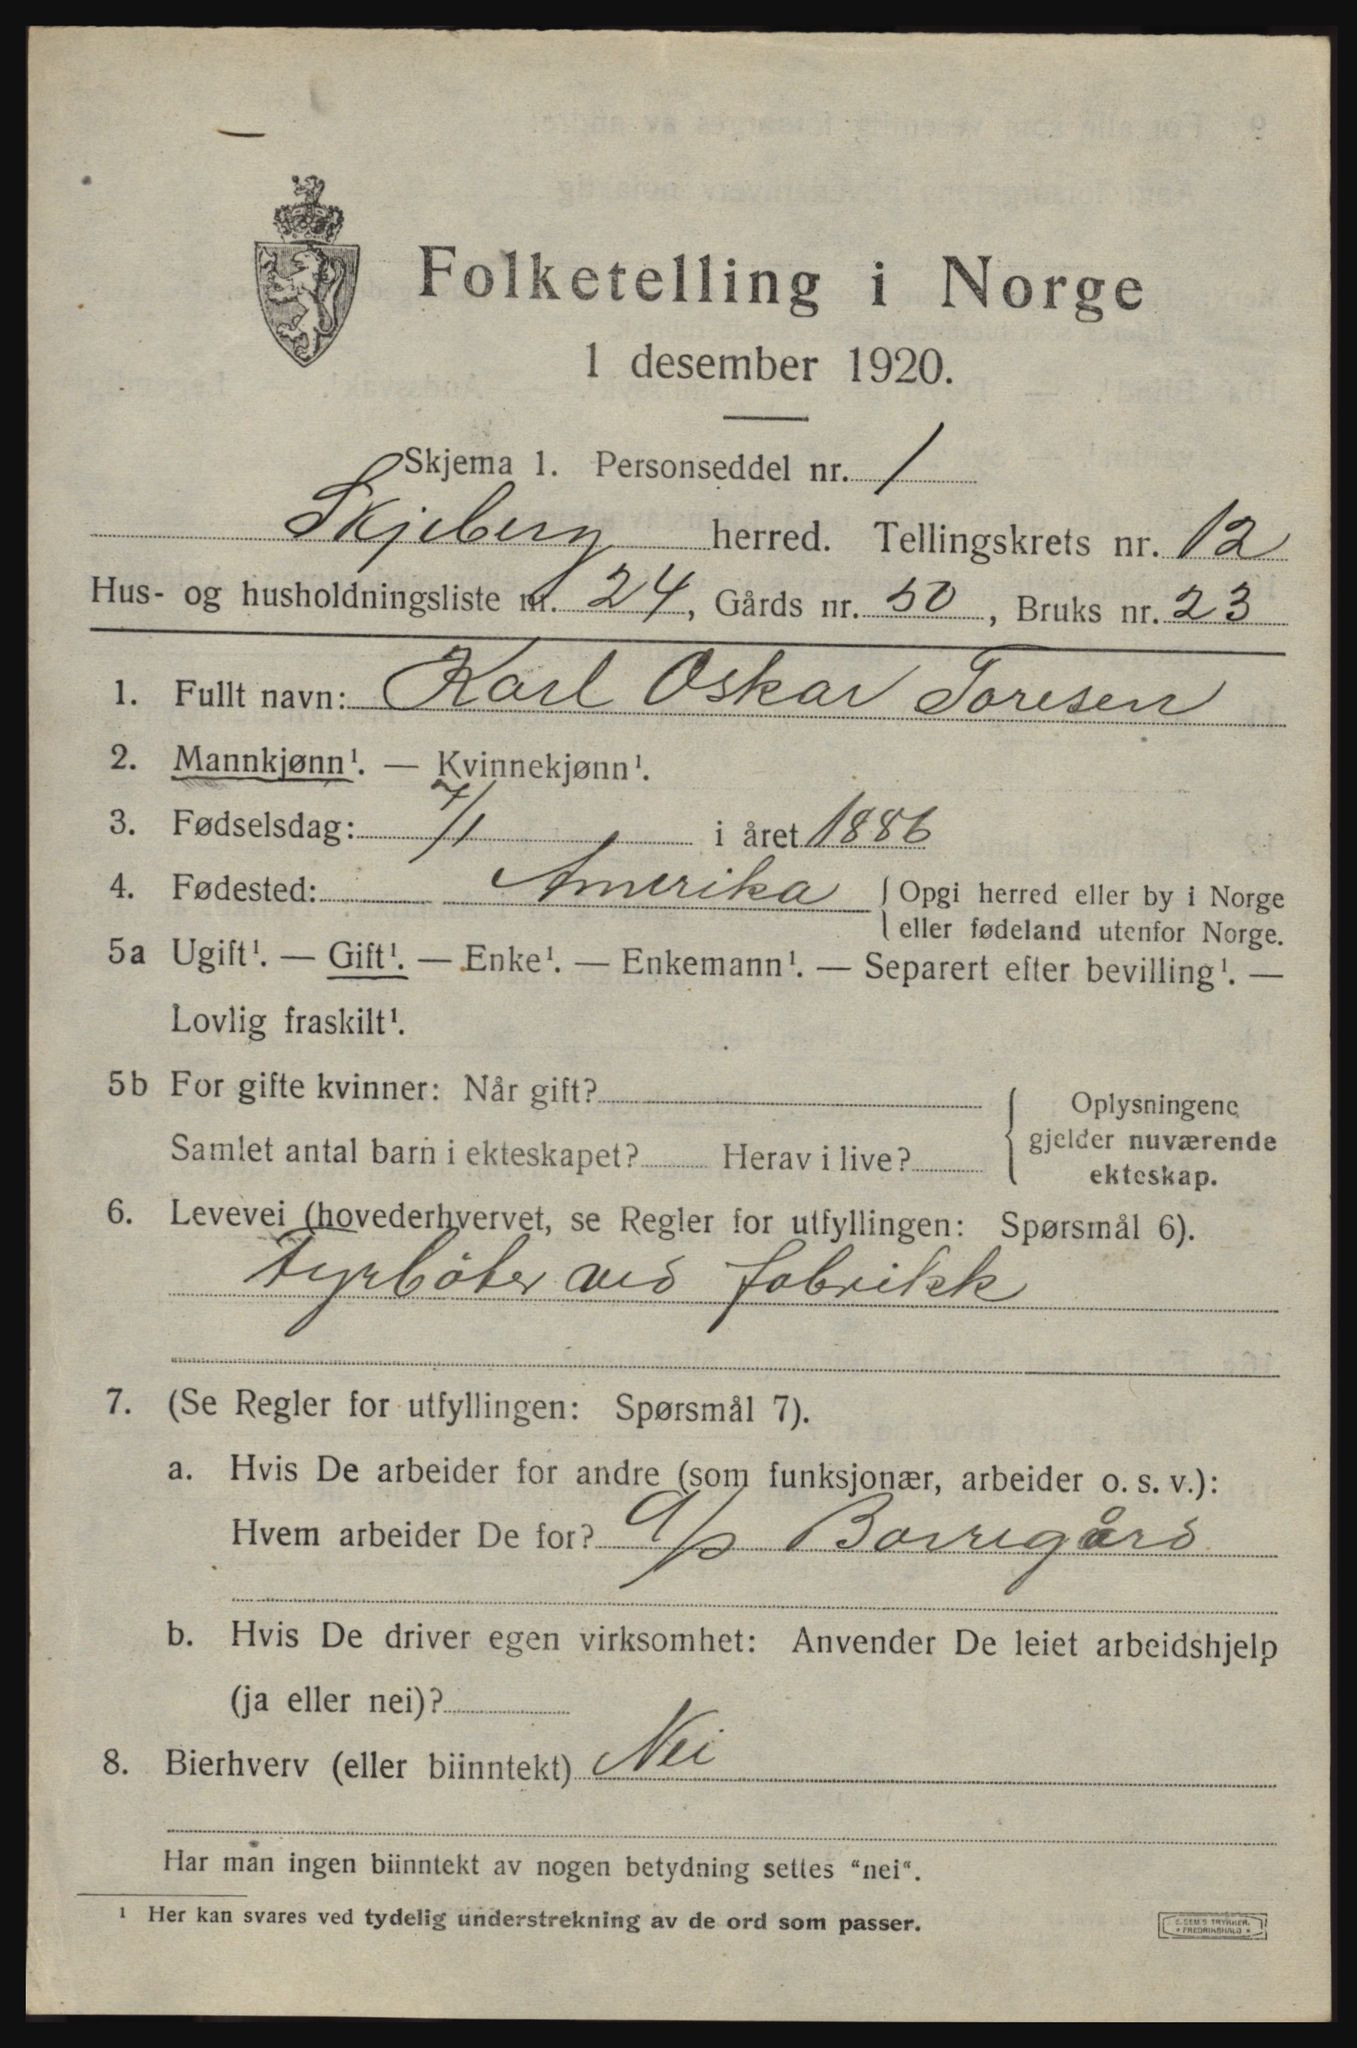 Folketelling i Norge
1 desember 1920.
Skjema 1. Personseddel nr. 1
Skjeberg herred. Tellingskrets nr. 12
Hus- og husholdningsliste nr. 24, Gårds nr. 50, Bruks nr. 23
1. Fullt navn: Karl Oskar Toresen
2. Mannkjønn¹. — Kvinnekjønn¹.
3. Fødselsdag: 7/1 i året 1886
4. Fødested: Amerika { Opgi herred eller by i Norge
eller fødeland utenfor Norge.
5a Ugift¹. — Gift¹. — Enke¹. — Enkemann¹. — Separert efter bevilling¹. —
Lovlig fraskilt¹.
5b For gifte kvinner: Når gift?
Samlet antal barn i ekteskapet? Herav i live?
Oplysningene
gjelder nuværende
ekteskap.
6. Levevei (hovederhvervet, se Regler for utfyllingen: Spørsmål 6).
fyrböter ved fabrikk
7. (Se Regler for utfyllingen: Spørsmål 7).
a. Hvis De arbeider for andre (som funksjonær, arbeider o. s. v.):
Hvem arbeider De for? A/s Borregård
b. Hvis De driver egen virksomhet: Anvender De leiet arbeidshjelp
(ja eller nei)?
8. Bierhverv (eller biinntekt) Nei
Har man ingen biinntekt av nogen betydning settes “nei“.
¹ Her kan svares ved tydelig understrekning av de ord som passer.
E. SEM'S TRYKKERI
* FREDRIKSHALD *